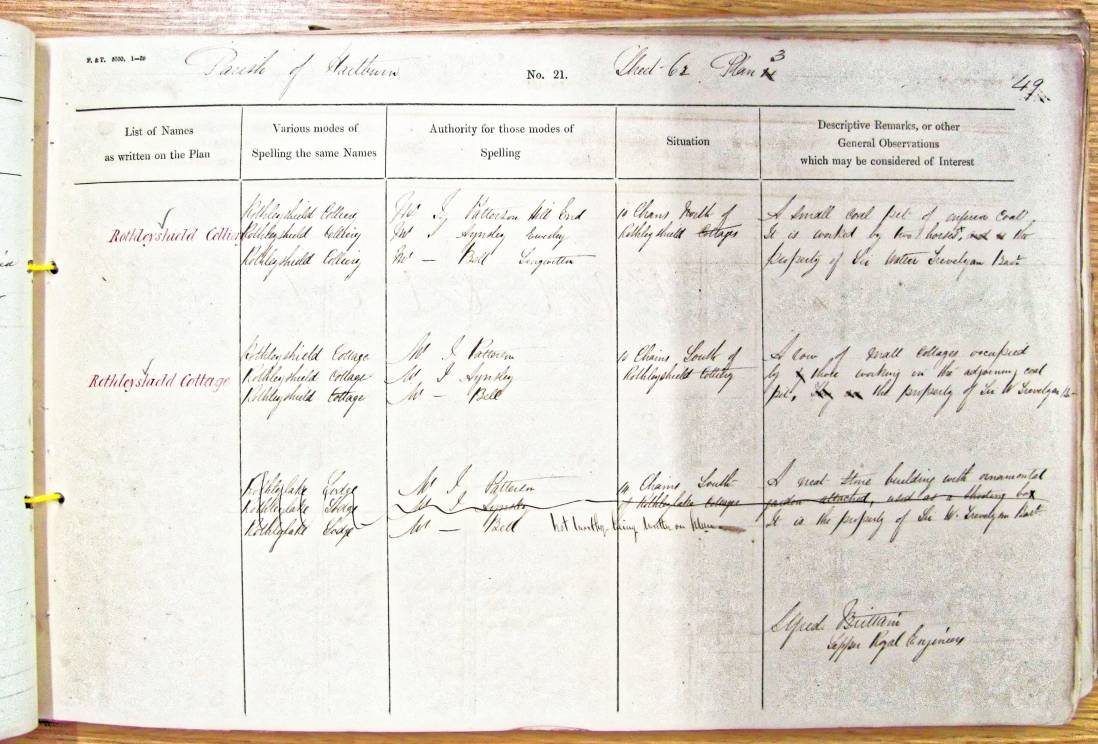 F. & T. 3000, 1—59
Parish of Hartburn
No. 21.
Sheet 62 Plan 3
49
List of Names
as written on the Plan
Various modes of
Spelling the same Names
Authority for those modes of
Spelling
Situation
Descriptive Remarks, or other
General Observations
which may be considered of Interest
Rothleyshield Colliery
Rothleyshield Colliery
Rothleyshield Colliery
Rothleyshield Colliery
Mr J. Patterson Hill End
Mr J Aynsley
Mr — Bell Longwitton
10 Chains North of
Rothleyshield Cottages
A small coal pit of inferior coal
It is worked by two horses, and is the
property of Sir Walter Trevelyan Bart
Rothleyshield Cottage
Rothleyshield Cottage
Rothleyshield Cottage
Rothleyshield Cottage
Mr J Patterson
Mr J Aynsley
Mr — Bell
10 Chains South of
Rothleyshield Colliery
A row of small cottages occupied
by those working in the adjoining coal
pit, the property of Sir W Trevelyan Bt
Rothleylake Lodge
Rothleylake Lodge
Rothleylake Lodge
Mr J. Patterson
Mr J Aynsley
Mr — Bell
Not worthy being written on plan
Chains South
of Rothleylake Cottage
A neat stone building with ornamental
garden attached, used as a shooting box
It is the property of Sir W. Trevelyan Bart
Alfred Brittain
Sapper Royal Engineers